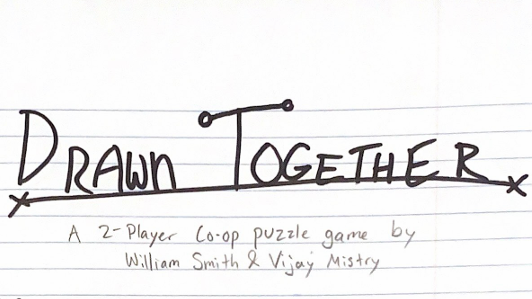 DRAWN TOGETHER
A 2-Player Co-op puzzle game by
William Smith & Vijay Mistry